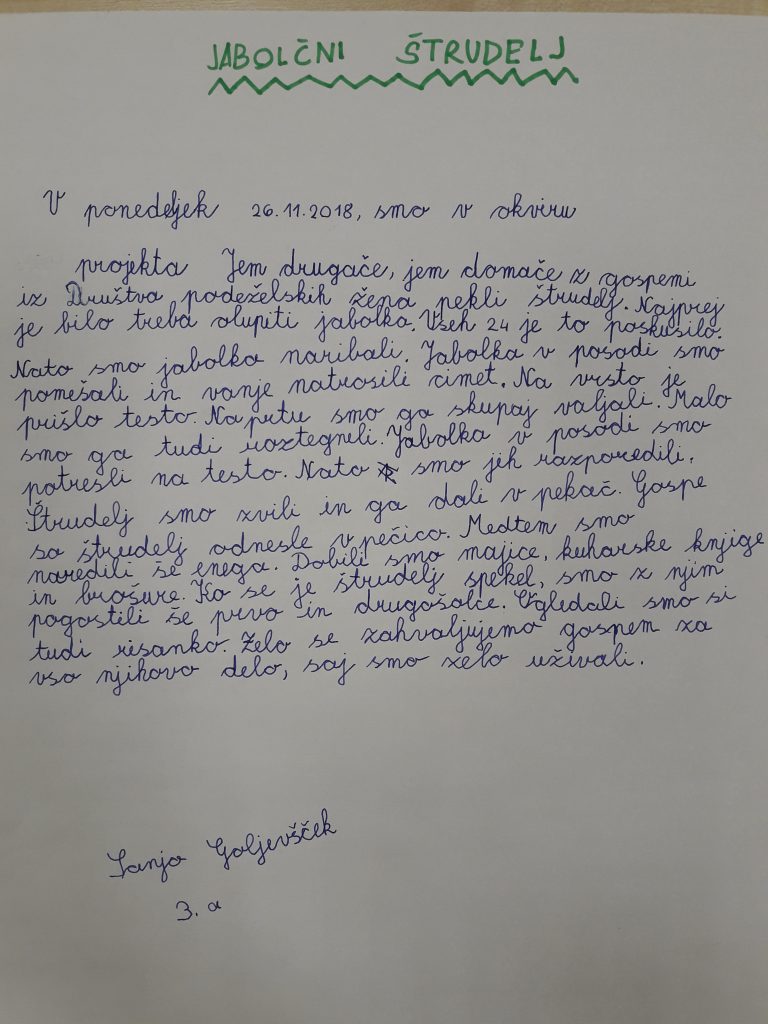 JABOLČNI ŠTRUDELJ
V ponedeljek 26.11.2018, smo v okviru
projekta Jem drugače, jem domače z gospemi
iz Društva podeželskih žena pekli štrudelj. Najprej
je bilo treba olupiti jabolka. Vseh 24 je to poskusilo.
Nato smo jabolka naribali. Jabolka v posodi smo
pomešali in vanje natrosili cimet. Na vrsto je
prišlo testo. Na prtu smo ga skupaj valjali. Malo
smo ga tudi raztegnili. Jabolka v posodi smo
potresli na testo. Nato smo jih razporedili.
Štrudelj smo zvili in ga dali v pekač. Gospe
so štrudelj odnesle v pečico. Medtem smo
naredili še enega. Dobili smo majice, kuharske knjige
in brošure. Ko se je štrudelj spekel, smo z njim
pogostili še prvo in drugošolce. Ogledali smo si
tudi risanko. Zelo se zahvaljujemo gospem za
vso njihovo delo, saj smo zelo uživali.
Goljevšček
3. a